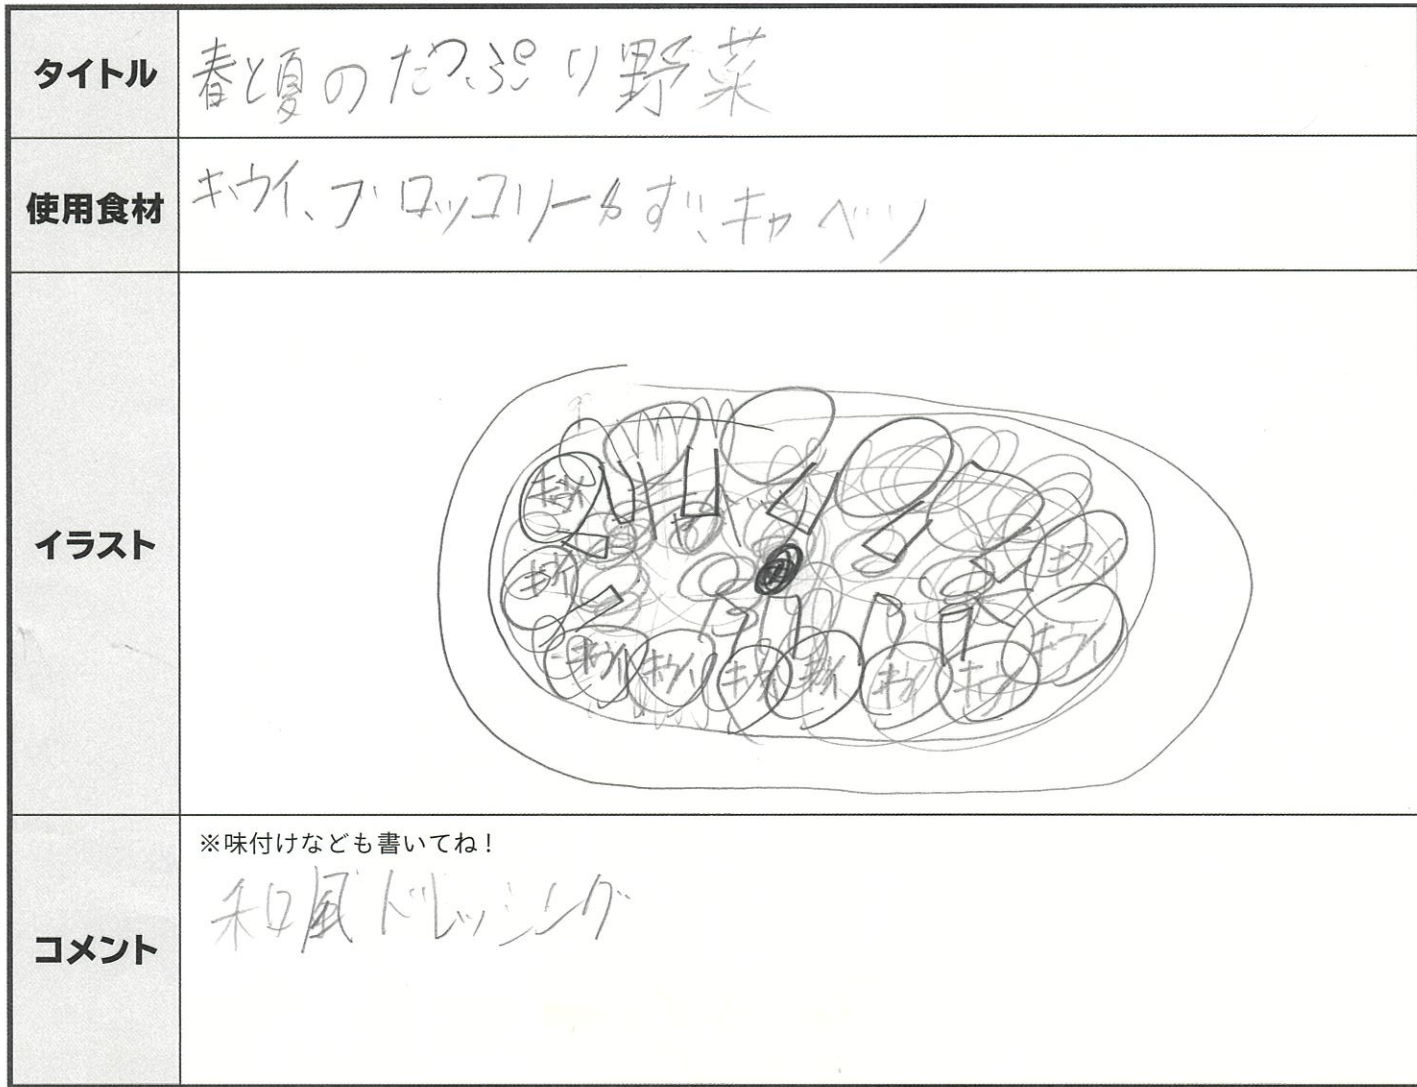 タイトル
春と夏のたっぷり野菜
使用食材
キウイ、ブロッコリー、かず、キャベツ
イラスト
キウイ
キウイ
キウイ
キウイ
キウイ
キウイ
キウイ
キウイ
キウイ
キウイ
コメント
※味付けなども書いてね!
和風ドレッシング